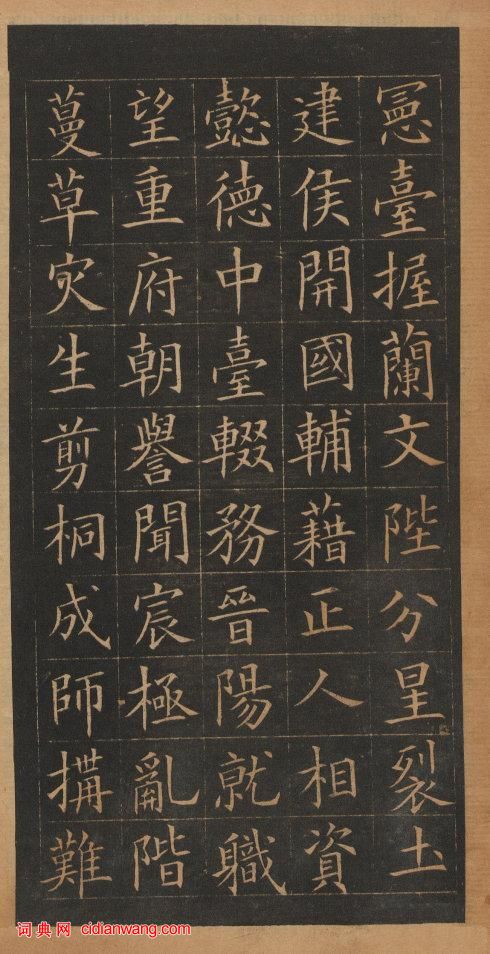 憲臺握蘭文陛分星裂土
建侯開國輔藉正人相資
懿德中臺輟務晉陽就職
望重府朝譽聞宸極亂階
蔓草灾生剪桐成師搆難
词典网 cidianwang.com